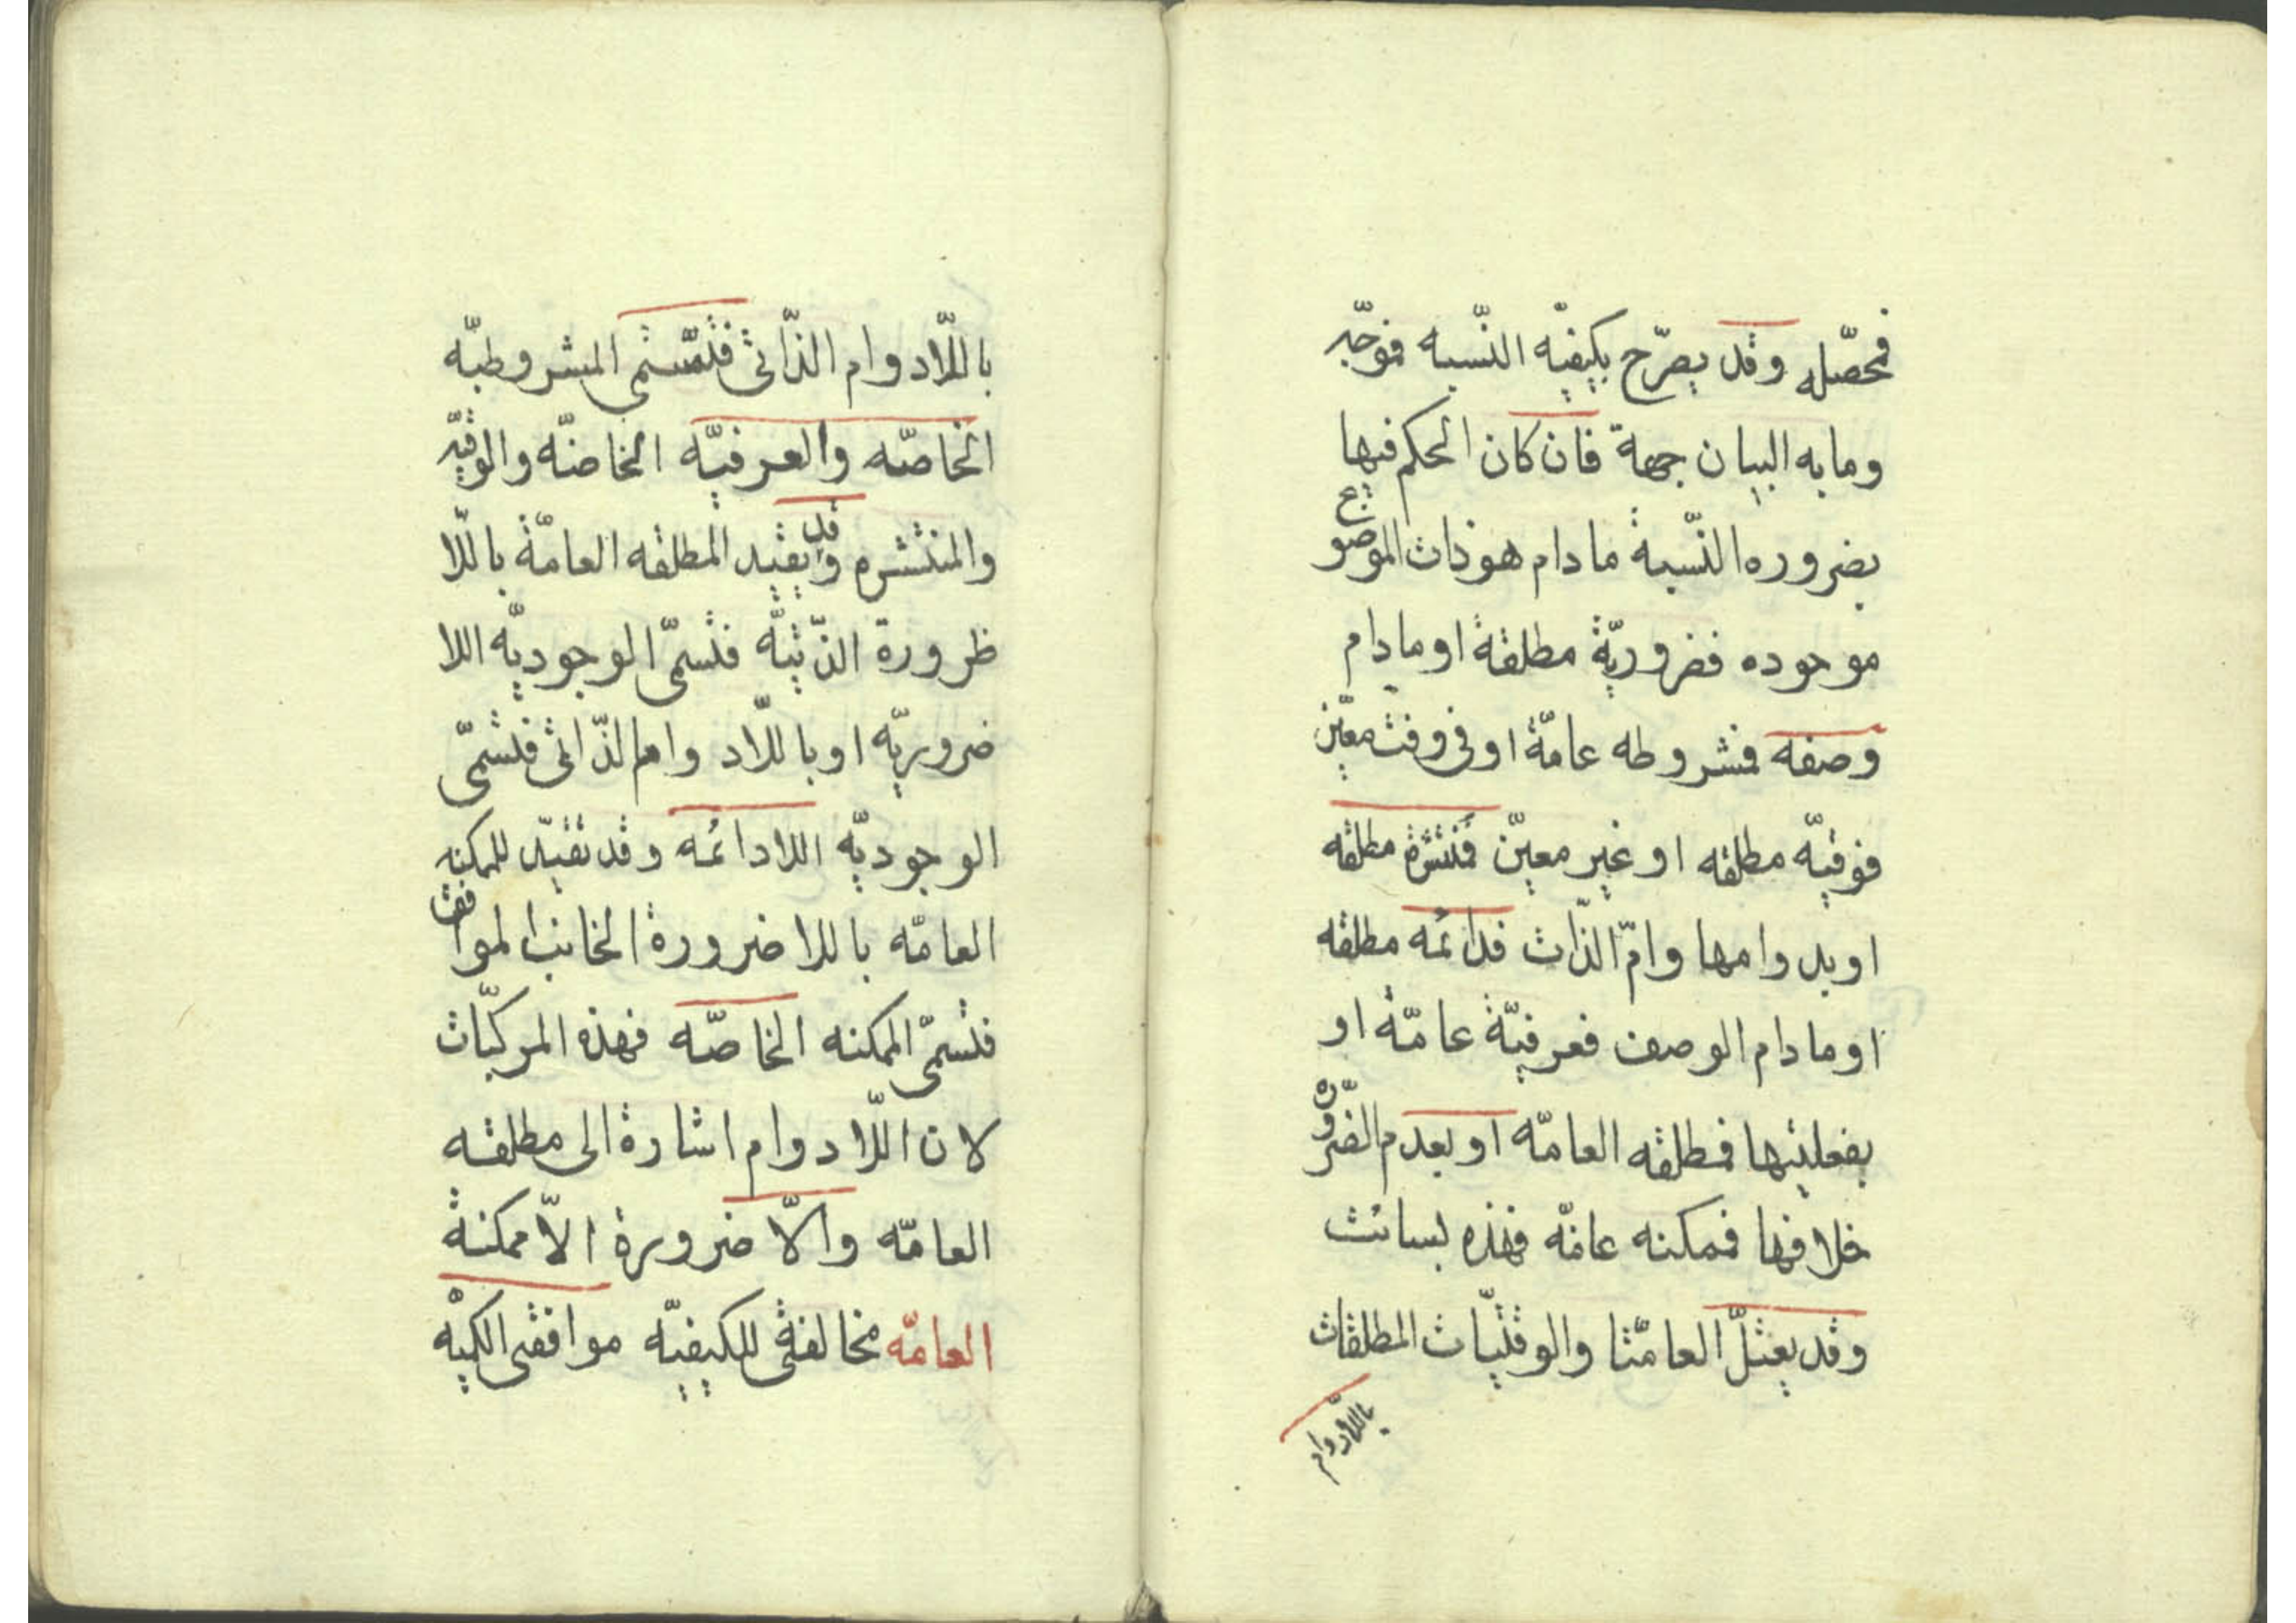 فمحصّله وقد يصرّح بكيفيّه النّسبه فموجّه
ومابه البيان جهة فان كان الحكم فيها
بضروره النّسبة مادام هوذات الموضوع
موجوده فضروريّة مطلقة او مادام
وصفه فمشروطه عامّة اوفى وقت معيّن
فوقتيّه مطلقه او غير معيّن فمنتشرة مطلقه
اوبدوامها وامّ الذّات فدائمه مطلقه
اومادام الوصف فعرفيّة عامّة او
بفعليتها فمطلقه العامّه اوبعدم الضّرورة
خلافها فممكنه عامّه فهذه بسائت
وقد يعتلّ العامّتا والوقتيّات المطلقات
باللّادوام
باللّادوام الذّاتى فتسمّى المشروطيّه
الخاصّه والعرفيّه الخاصّه والوقتيّه
والمنتشره وقد يقيد المطلقه العامّة باللّا
ظرورة الذّيتيّه فتسمّى الوجوديّه اللا
ضروريّه اوباللّادوام الذّاتى فتسمّى
الوجوديّه اللادائمه وقد تقيّد للممكنه
العامّه باللاضرورة الخانب الموافق
فتسمّى الممكنه الخاصّه فهذه المركبّات
لان اللّادوام اشارة الى مطلقه
العامّه والّا ضرورة الّا ممكنة
العامّه مخالفتى للكيفيّه موافقى الكميّه